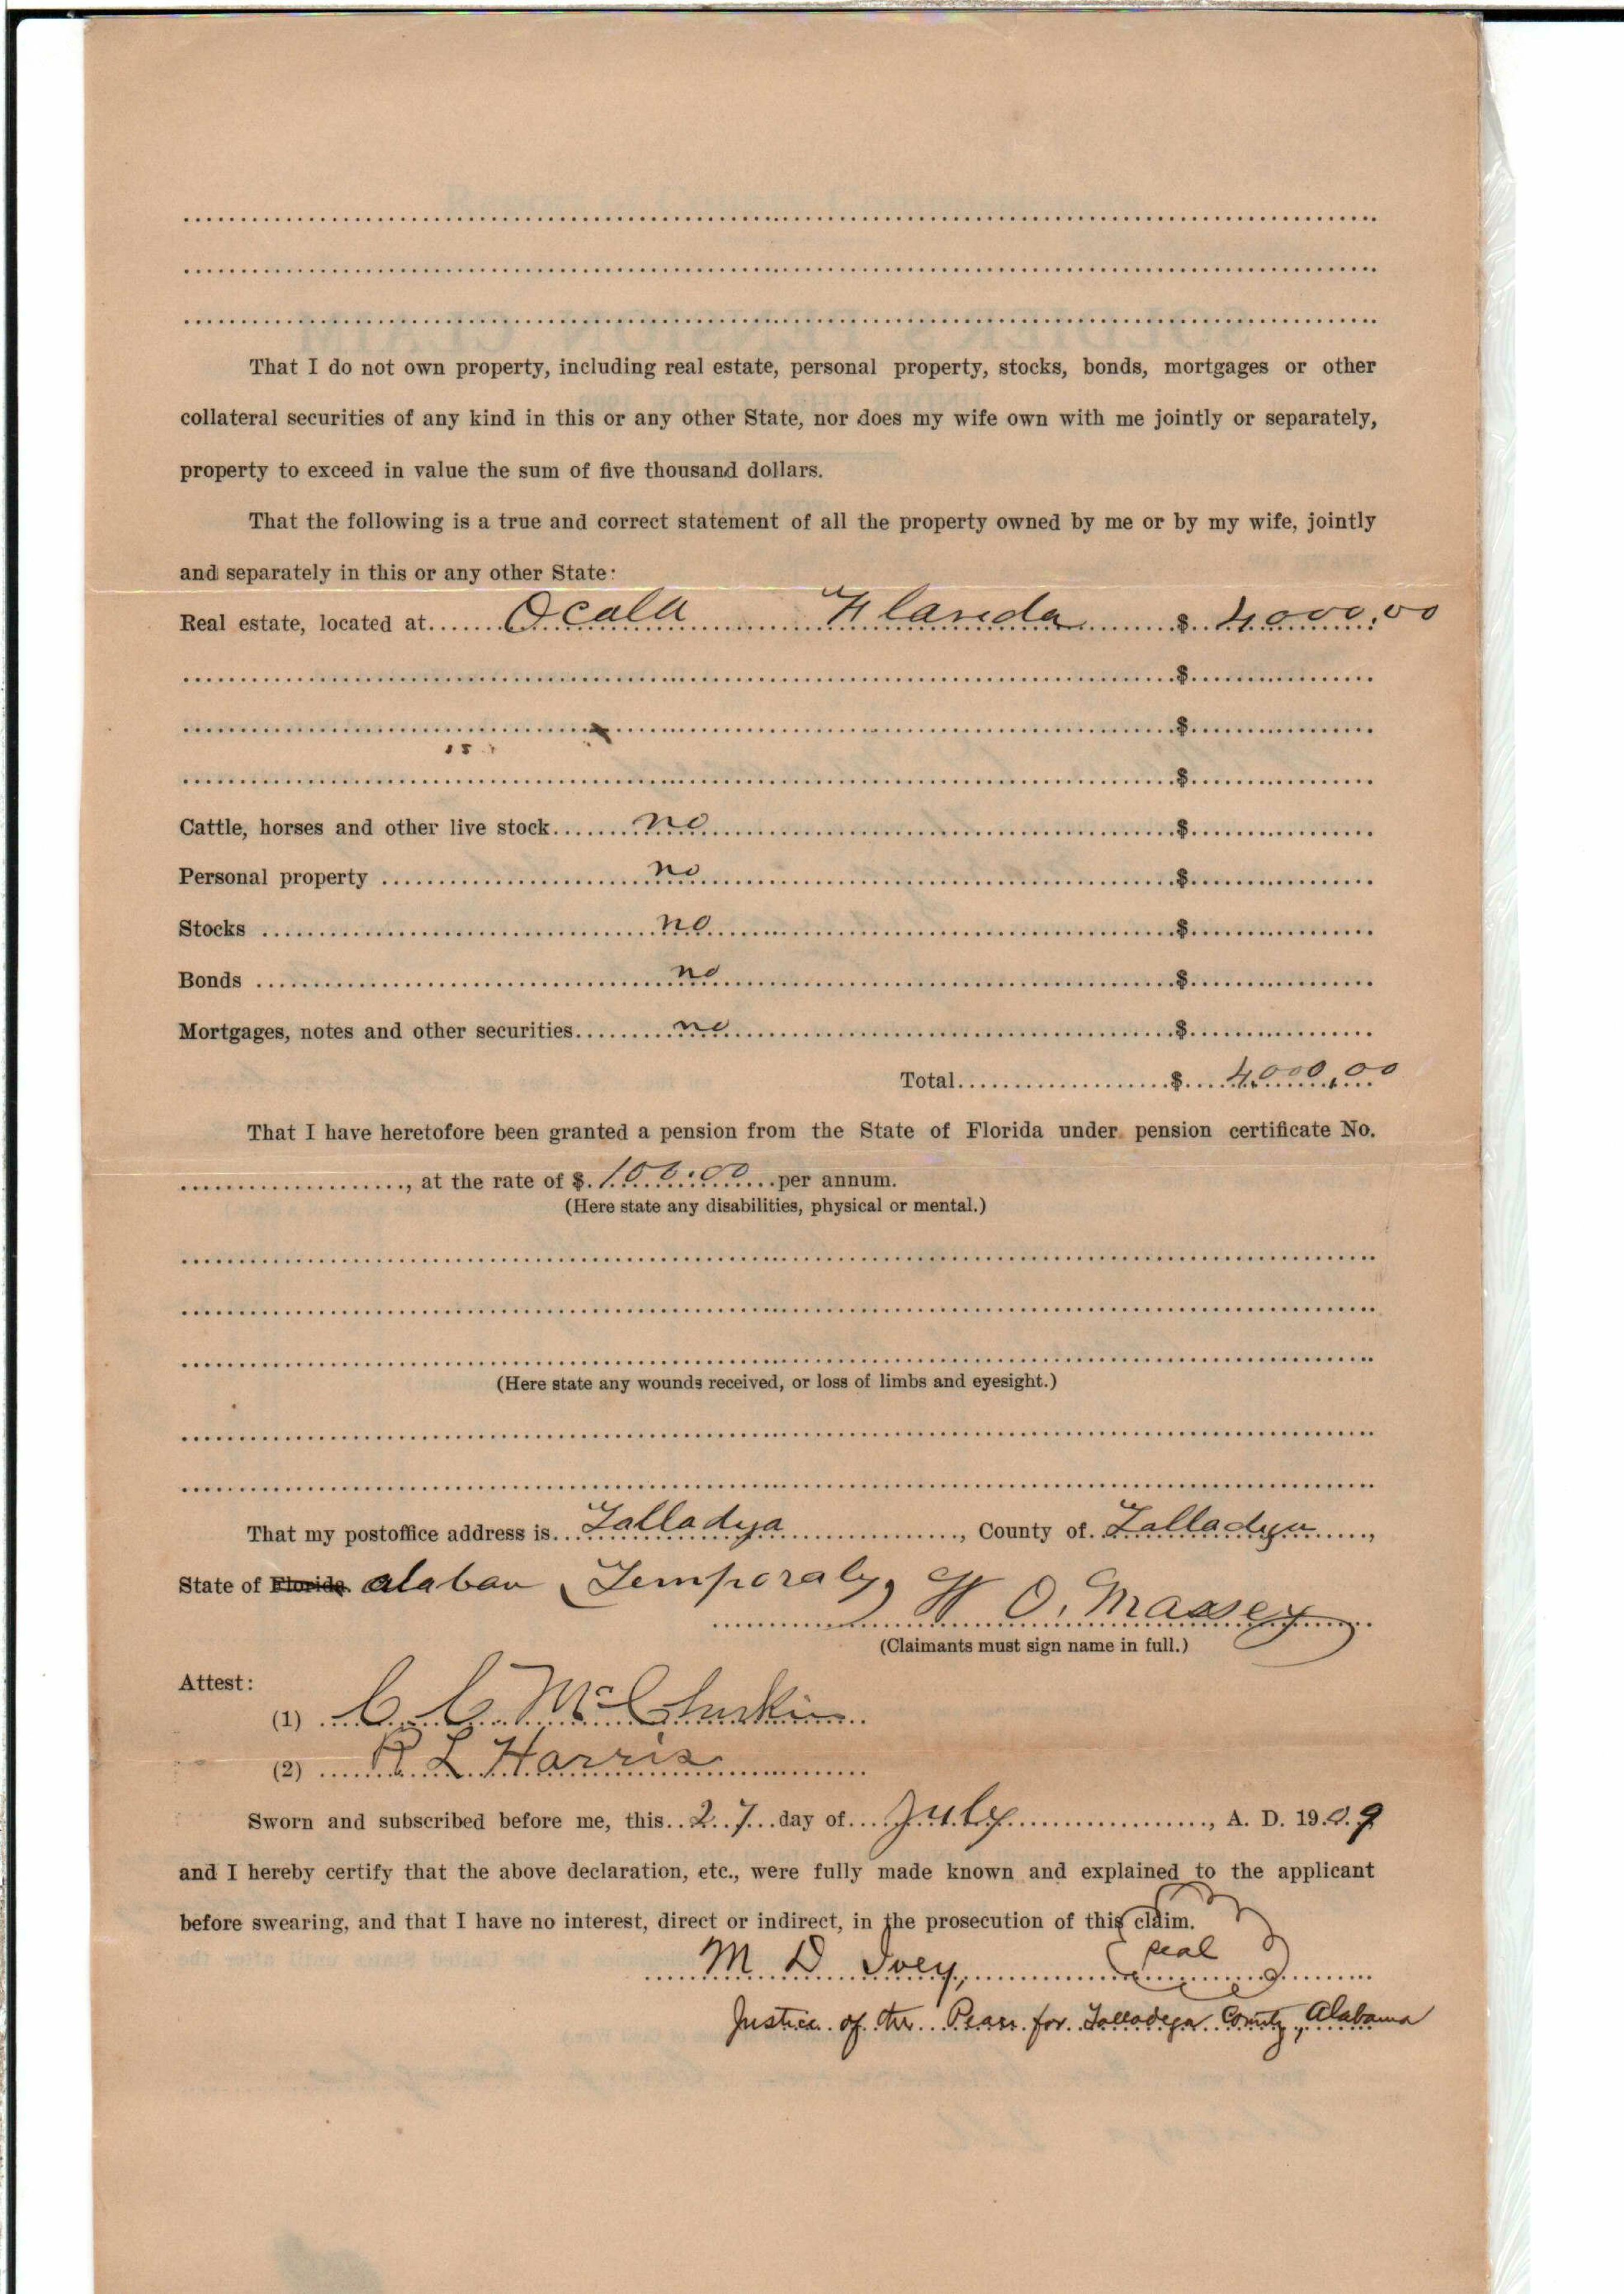 That I do not own property, including real estate, personal property, stocks, bonds, mortgages or other
collateral securities of any kind in this or any other State, nor does my wife own with me jointly or separately,
property to exceed in value the sum of five thousand dollars.
That the following is a true and correct statement of all the property owned by me or by my wife, jointly
and separately in this or any other State:
Real estate, located at Ocala Flareda $ 4000.00
$
$
$
Cattle, horses and other live stock no $
Personal property no $
Stocks no $
Bonds no $
Mortgages, notes and other securities no $
Total $ 4,000.00
That I have heretofore been granted a pension from the State of Florida under pension certificate No.
, at the rate of $ 100.00 per annum.
(Here state any disabilities, physical or mental.)
(Here state any wounds received, or loss of limbs and eyesight.)
That my postoffice address is Talladga, County of Talladga,
State of Florida alabau (Temporaly)
W O. Massey
(Claimants must sign name in full.)
Attest:
(1) C. C. McClurkin
(2) R L Harris
Sworn and subscribed before me, this 27 day of July, A. D. 1909
and I hereby certify that the above declaration, etc., were fully made known and explained to the applicant
before swearing, and that I have no interest, direct or indirect, in the prosecution of this claim.
M. D. Ivey, seal
Justice of the Peace for Talladega County, Alabama